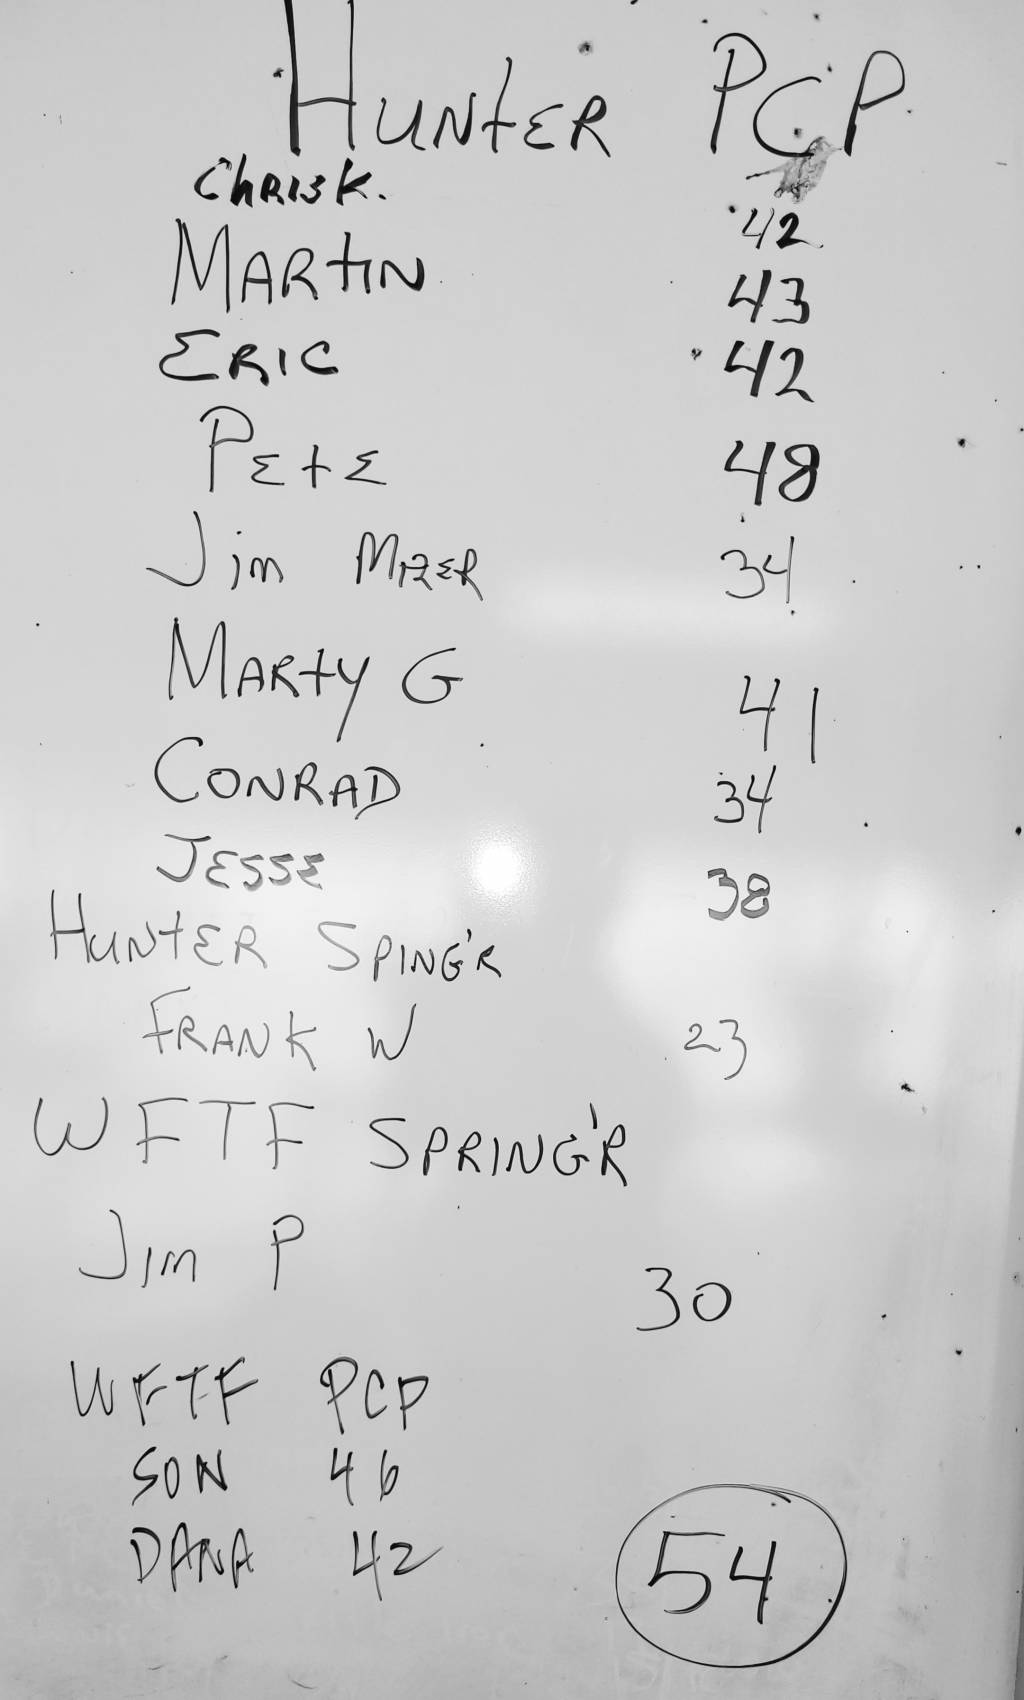 HUNTER PCP
CHRIS K. 42
MARTIN 43
ERIC 42
PETE 48
Jim MIZER 34
MARTY G 41
CONRAD 34
JESSE 38
HUNTER SPING'R
FRANK W 23
WFTF SPRING'R
JIM P 30
WFTF PCP
SON 46
DANA 42
54